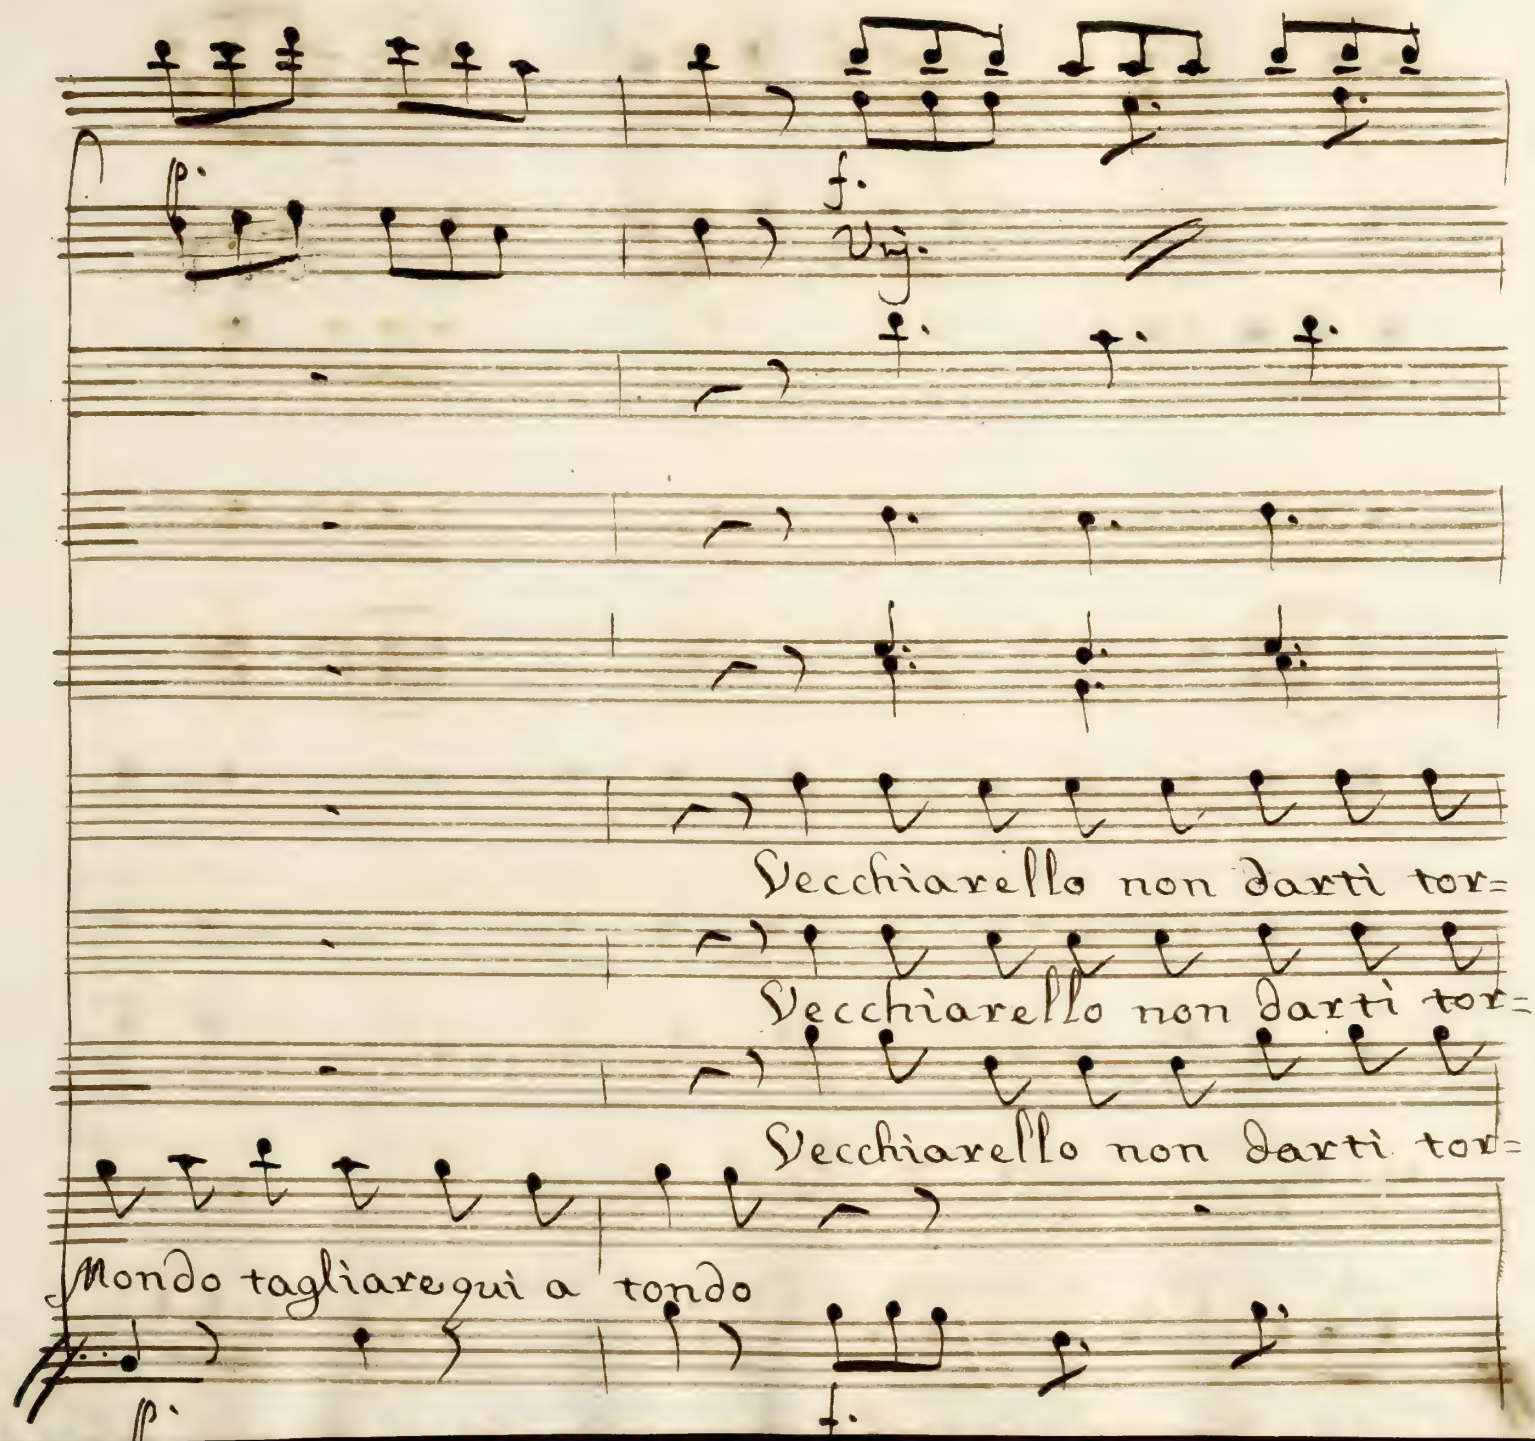 p.
f.
Unj.
Vecchiarello non darti tor=
Vecchiarello non darti tor=
Vecchiarello non darti tor=
Mondo tagliare qui a tondo
p.
f.